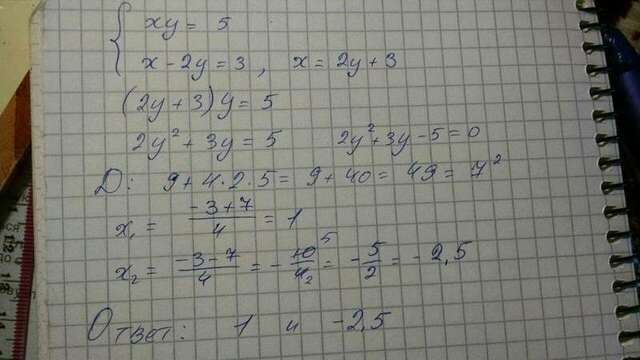 { xy = 5
x - 2y = 3, x = 2y + 3
(2y + 3)y = 5
2y² + 3y = 5 2y² + 3y - 5 = 0
D: 9 + 4·2·5 = 9 + 40 = 49 = 7²
x₁ = (-3+7)/4 = 1
x₂ = (-3-7)/4 = -10/4 5 2 = -5/2 = -2,5
Ответ: 1 и -2,5